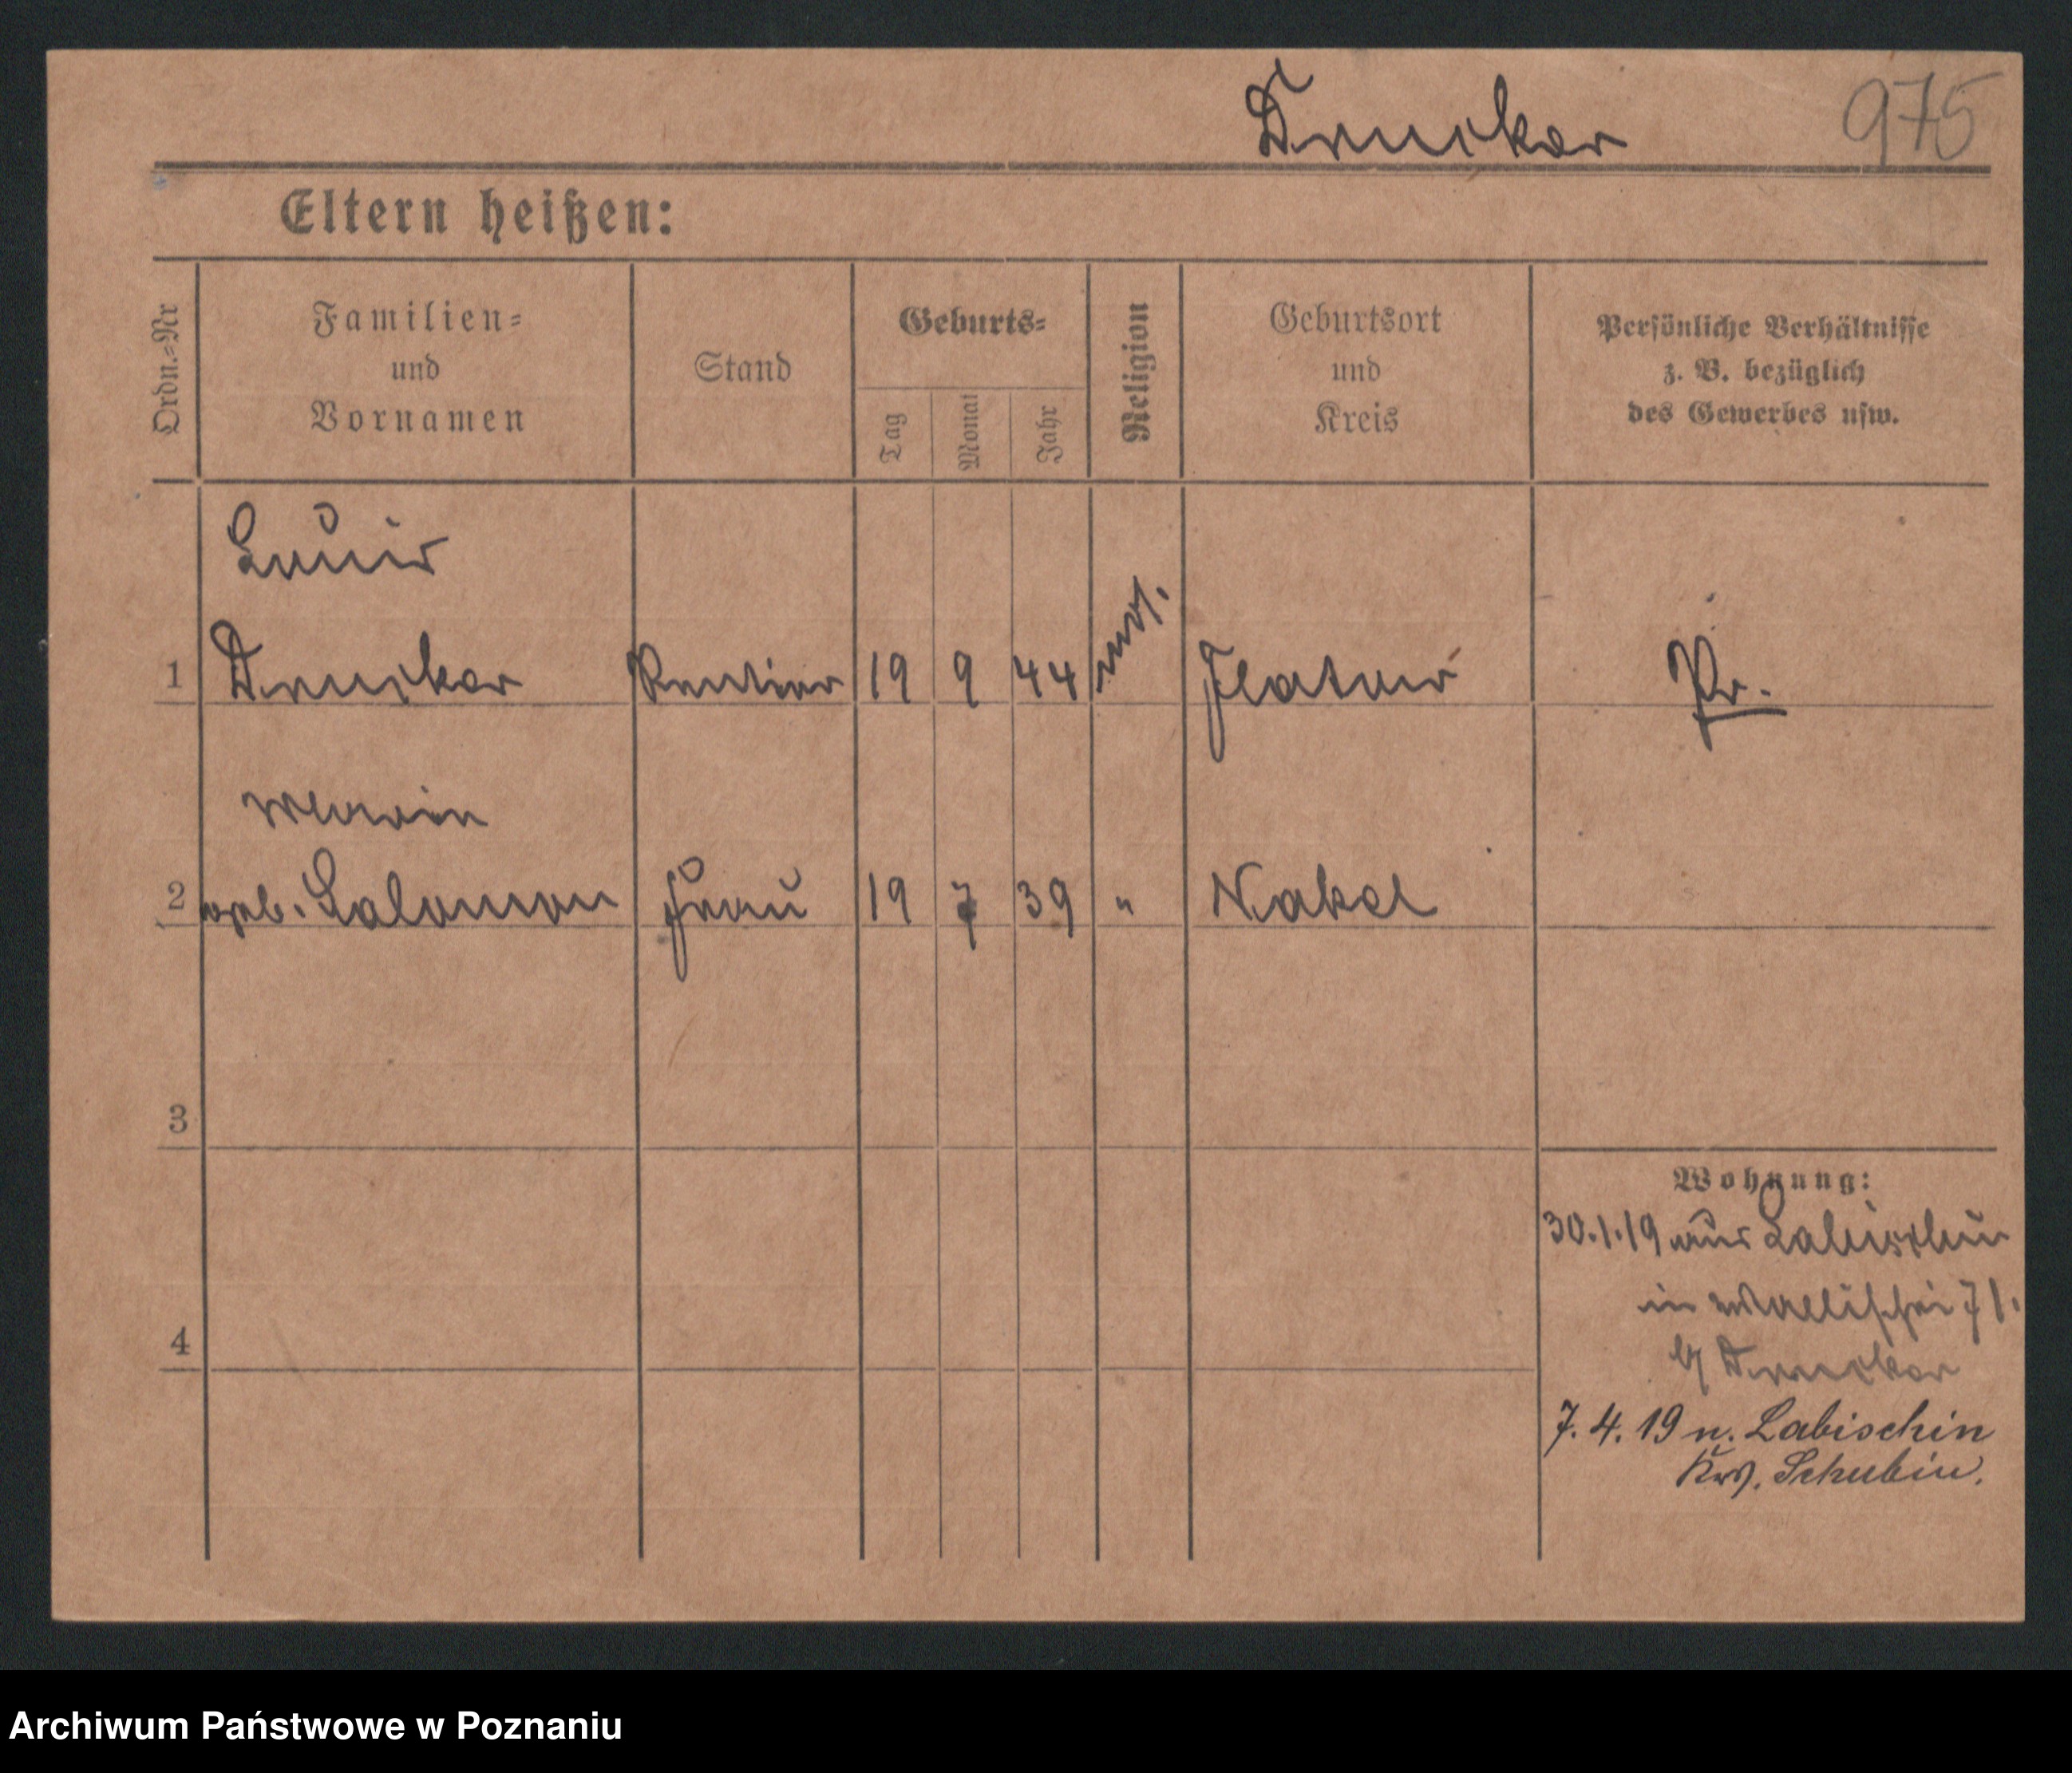 Drucker 975
Eltern heißen:
Ordn.=Nr
Familien=
und
Vornamen
Stand
Geburts=
Tag
Monat
Jahr
Religion
Geburtsort
und
Kreis
Persönliche Verhältnisse
z. B. bezüglich
des Gewerbes usw.
Louis
1 Drucker Rentier 19 9 44 mos. Flatow Pr.
2 geb. Salomon Frau 19 7 39 " Nakel
3
4
Wohnung:
30.1.19 aus Labischin
in Wallischei 71.
b/ Drucker
7. 4. 19 n. Labischin
Krs. Schubin.
Archiwum Państwowe w Poznaniu